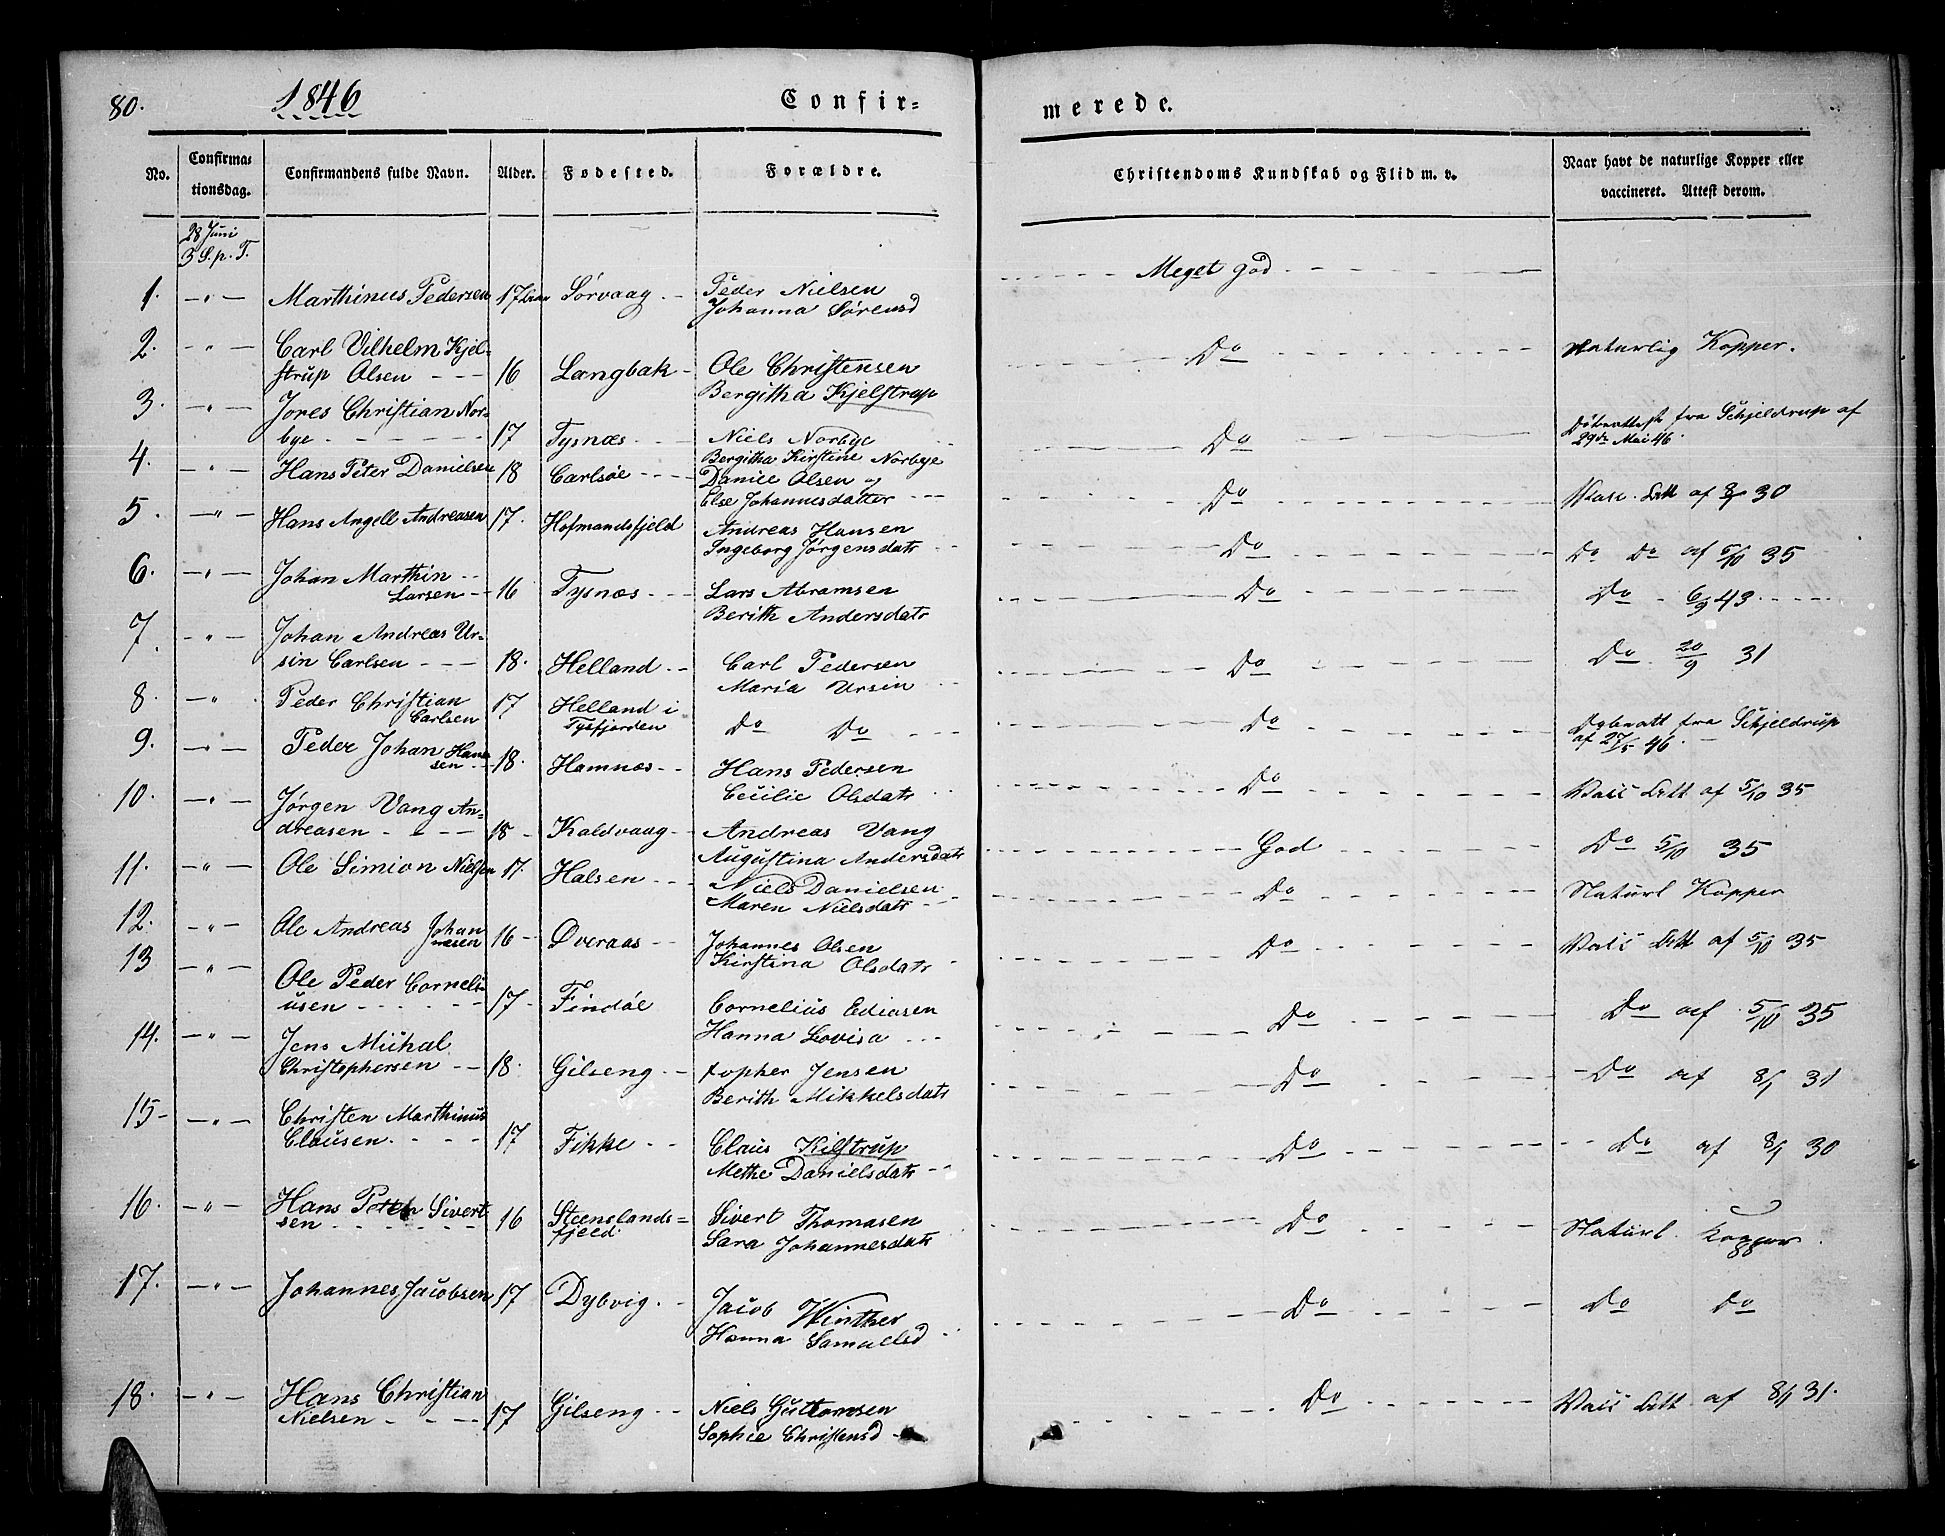 80. 1846 Confir= merede.
No. Confirmationsdag. Confirmandens fulde Navn. Alder. Fødested. Forældre. Christendoms Kundskab og Flid m. v. Naar havt de naturlige Kopper eller vaccineret. Attest derom.
28 Juni
3 S. p. T.
1. —〃— Marthinus Pedersen 17 Sørvaag Peder Nielsen Meget god
Johanna Sørensd
2. —〃— Carl Vilhelm Kjel=
strup Olsen 16 Langbak Ole Christensen Do Naturlig Kopper.
Bergitha Kjelstrup
3. —〃— Jores Christian Nor=
bye 17 Tysnæs Niels Norbye Do Døbeattest fra Schjeldrup af
29de Mai 46.
Bergitha Kirstine Norbye
4. —〃— Hans Peter Danielsen 18 Carlsøe Daniel Olsen og Do Vasc. Att af 30
Else Johannesdatter
5. —〃— Hans Angell Andreasen 17. Hofmandsfjeld Andreas Hansen Do Do Do af 5/10 35
Ingeborg Jørgensdatr
6. —〃— Johan Marthin
Larsen 16 Tysnæs Lars Abramsen Do Do 6/9 43
Berith Andersdatr
7. —〃— Johan Andreas Ur=
sin Carlsen 18. Helland Carl Pedersen Do Do 20/9 31
Maria Ursin
8. —〃 Peder Christian
Carlsen 17 Helland i
Tysfjorden Do Do Do Døbeatt fra Schjeldrup
af 27/5 46.
9. —〃— Peder Johan Han=
sen 18. Hamnæs Hans Pedersen Do Vacc Att af 5/10 35
Cecilie Olsdatr
10. —〃— Jørgen Vang An=
dreasen 18 Kaldvaag Andreas Vang God Do 5/10 35
Augustina Andersdatr
11. —〃— Ole Simion Nielsen 17. Halsen Niels Danielsen Do Naturl Kopper
Maren Nielsdatr
12. —〃— Ole Andreas Johan
nesen 16 Overaas Johannes Olsen Do Vacc Att af 5/10 35
Kirstina Olsdatr
13 —〃— Ole Peder Corneli=
usen 17 Findøe Cornelius Ediasen Do Do af 5/10 35
Hanna Lovisa
14. —〃— Jens Michal
Christophersen 18. Gilseng topher Jensen Do Do af 8/1 31
Berith Mikkelsdatr
15 —〃— Christen Marthinus
Clausen. 17 Fikke Claus Kilstrup Do Do af 8/1 30
Methe Danielsdatr
16. —〃— Hans Peter Sivert
sen 16 Steenslands=
fjeld Sivert Thomasen Do Naturl. Kopper
Sara Johannesdatr
17. —〃— Johannes Jacobsen 17 Dybvig. Jacob Winther Do Do Do
Hanna Samuelsd
18. —〃— Hans Christian
Nielsen 17 Gilseng Niels Guttomsen Do Vacc Att af 8/1 31.
Sophie Christensd